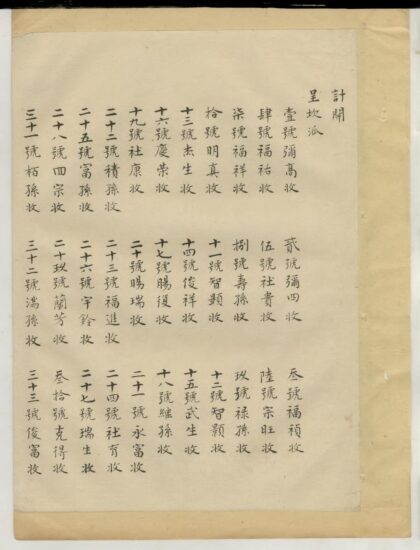 計開
呈坎派
壹號彌高收 貳號彌四收 叁號福禎收
肆號福祐收 伍號社貴收 陸號宗旺收
柒號福祥收 捌號壽孫收 玖號祿孫收
拾號明真收 十一號智顯收 十二號智顥收
十三號杰生收 十四號俊祥收 十五號武生收
十六號慶荣收 十七號賜復收 十八號繼孫收
十九號社康收 二十號賜瑞收 二十一號永富收
二十二號積孫收 二十三號福進收 二十四號社育收
二十五號富孫收 二十六號宇銓收 二十七號瑞生收
二十八號四宗收 二十玖號蘭芳收 叁拾號克得收
三十一號栢孫收 三十二號滿孫收 三十三號俊富收